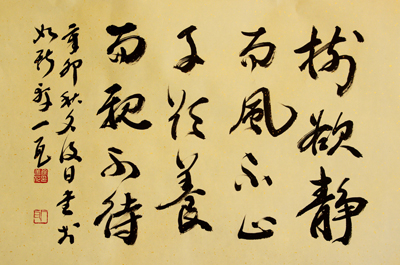 樹欲靜
而風不止
子欲養
而親不待
辛卯秋日書於